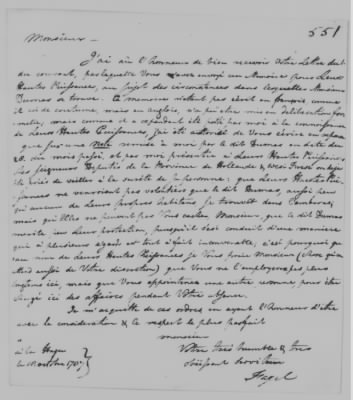 551
Monsieur
J'ai eû l'honneur de bien recevoir Votre Lettre du
du courant, par laquelle Vous avez envoyé un Memoire pour Leurs
Hautes Puissances, au sujet des circonstances dans lesquelles Monsieur
Dumas se trouve. Ce memoire n'étant pas écrit en françois comme
il est de coutume, mais en anglois, n'a pû etre mis en deliberation for-
melle, mais comme il a cependant été porté par moi à la connoissance
de Leurs Hautes Puissances, j'ai été autorisé de Vous écrire en reponse
que sur une Note remise à moi par le dit Dumas en date du
23 dix mois passé, et par moi présentée à Leurs Hautes Puissances,
les Seigneurs Deputés de la Province de Hollande & West Frise ont
été priés de veiller à la sureté de sa personne: que Leurs Hautes Puis-
sances ne verroient pas volontiers que le dit Dumas, aussi peu
qu'aucun de Leurs propres habitans se trouvoit dans l'embarras;
mais qu'Elles ne peuvent pas Vous cacher Monsieur, que le dit Dumas
merite peu Leur protection, puisqu'il s'est conduit d'une maniere
qui à plusieurs égards est tout à fait inconvenable, c'est pourquoi que
au nom de Leurs Hautes Puissances je Vous prie Monsieur
de Votre discretion) que Vous ne l'employerez plus
ici, mais que Vous appointerez une autre personne, pour être
chargé ici des affaires pendant Votre absence.
Je m'acquitte de ces ordres en ayant l'honneur d'être
avec la consideration & le respect le plus parfait
monsieur
à la Haye
le octobre 1787
Votre très humble & très
obéissant serviteur
Fagel